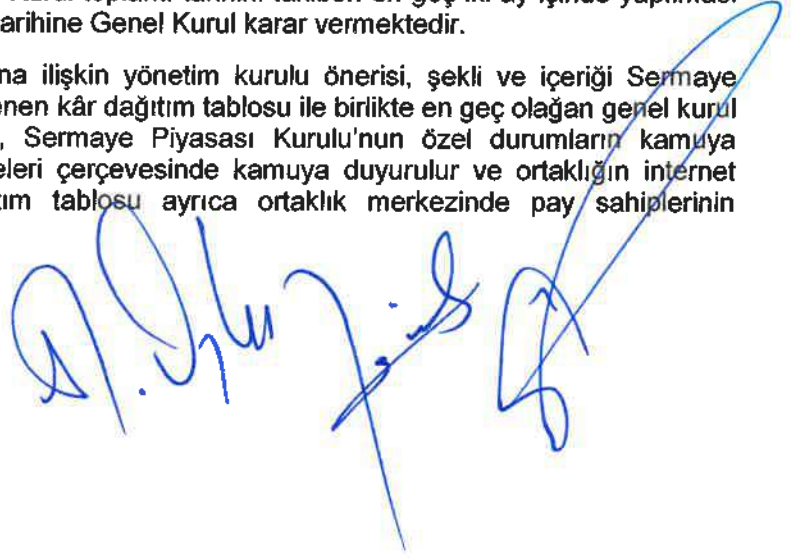 arihine Genel Kurul karar vermektedir.
na ilişkin yönetim kurulu önerisi, şekli ve içeriği Sermaye
enen kâr dağıtım tablosu ile birlikte en geç olağan genel kurul
, Sermaye Piyasası Kurulu'nun özel durumların kamuya
eleri çerçevesinde kamuya duyurulur ve ortaklığın internet
tım tablosu ayrıca ortaklık merkezinde pay sahiplerinin